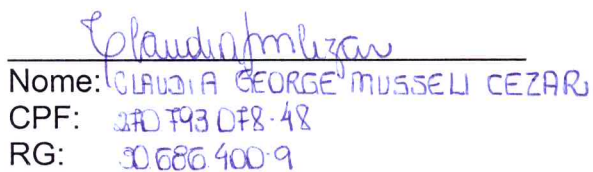 Nome: CLAUDIA GEORGE MUSSELI CEZAR
CPF: 270 793 078-48
RG: 30 686 400-9